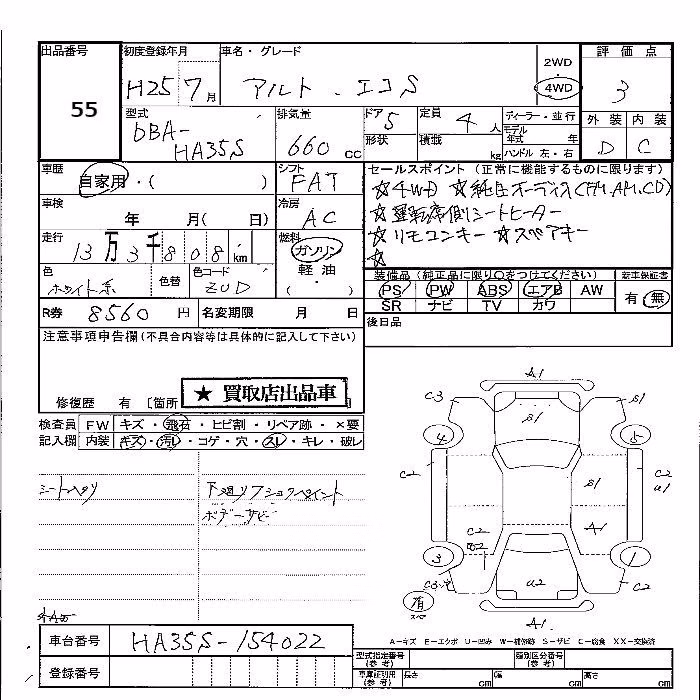 出品番号 初度登録年月 車名・グレード 2WD 評価点
55 H25 7月 アルト・エコS 4WD 3
外装 内装
D C
型式 DBA-HA35S
排気量 660 CC
ドア 5
形状
定員 4人
積載 kg
ディーラー・並行
モデル年式 年
ハンドル 左・右
車歴 自家用・( )
シフト FAT
セールスポイント (正常に機能するものに限ります)
☆4WD ☆純正オーディオ(FM.AM.CD)
☆運転席側シートヒーター
☆リモコンキー ☆スペアキー
☆
車検 年 月( 日)
冷房 AC
走行 13万3千808km
燃料 ガソリン
軽油
( )
色 ホワイト系
色替
色コード ZUD
装備品 (純正品に限り○をつけてください)
PS PW ABS エアB AW
SR ナビ TV カワ
新車保証書
有・無
R券 8560円 名変期限 月 日
後日品
注意事項申告欄(不具合内容等は具体的に記入して下さい)
修復歴 有 〔箇所
★ 買取店出品車
検査員 FW キズ・飛石・ヒビ割・リペア跡・×要
記入欄 内装 キズ・汚レ・コゲ・穴・スレ・キレ・破レ
シートヘタリ
下廻リフショクペイント
ボデーサビ
A1
C3 S1 S1
4 5
C2 S1 C2 U1
C2 A1
3 1
C2
U2
有 スペア
A1
A-キズ E-エクボ U-凹み W-補修跡 S-サビ C-腐食 XX-交換済
車台番号 HA35S-154022
登録番号
型式指定番号(参考) 類別区分番号(参考)
車庫証明用(参考) 長さ cm 幅 cm 高さ cm